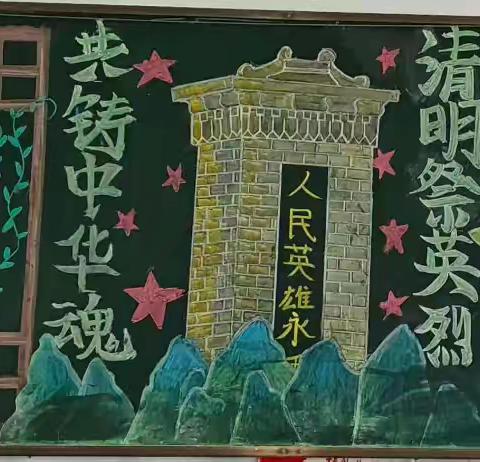 清明祭英烈
共铸中华魂
人民英雄永